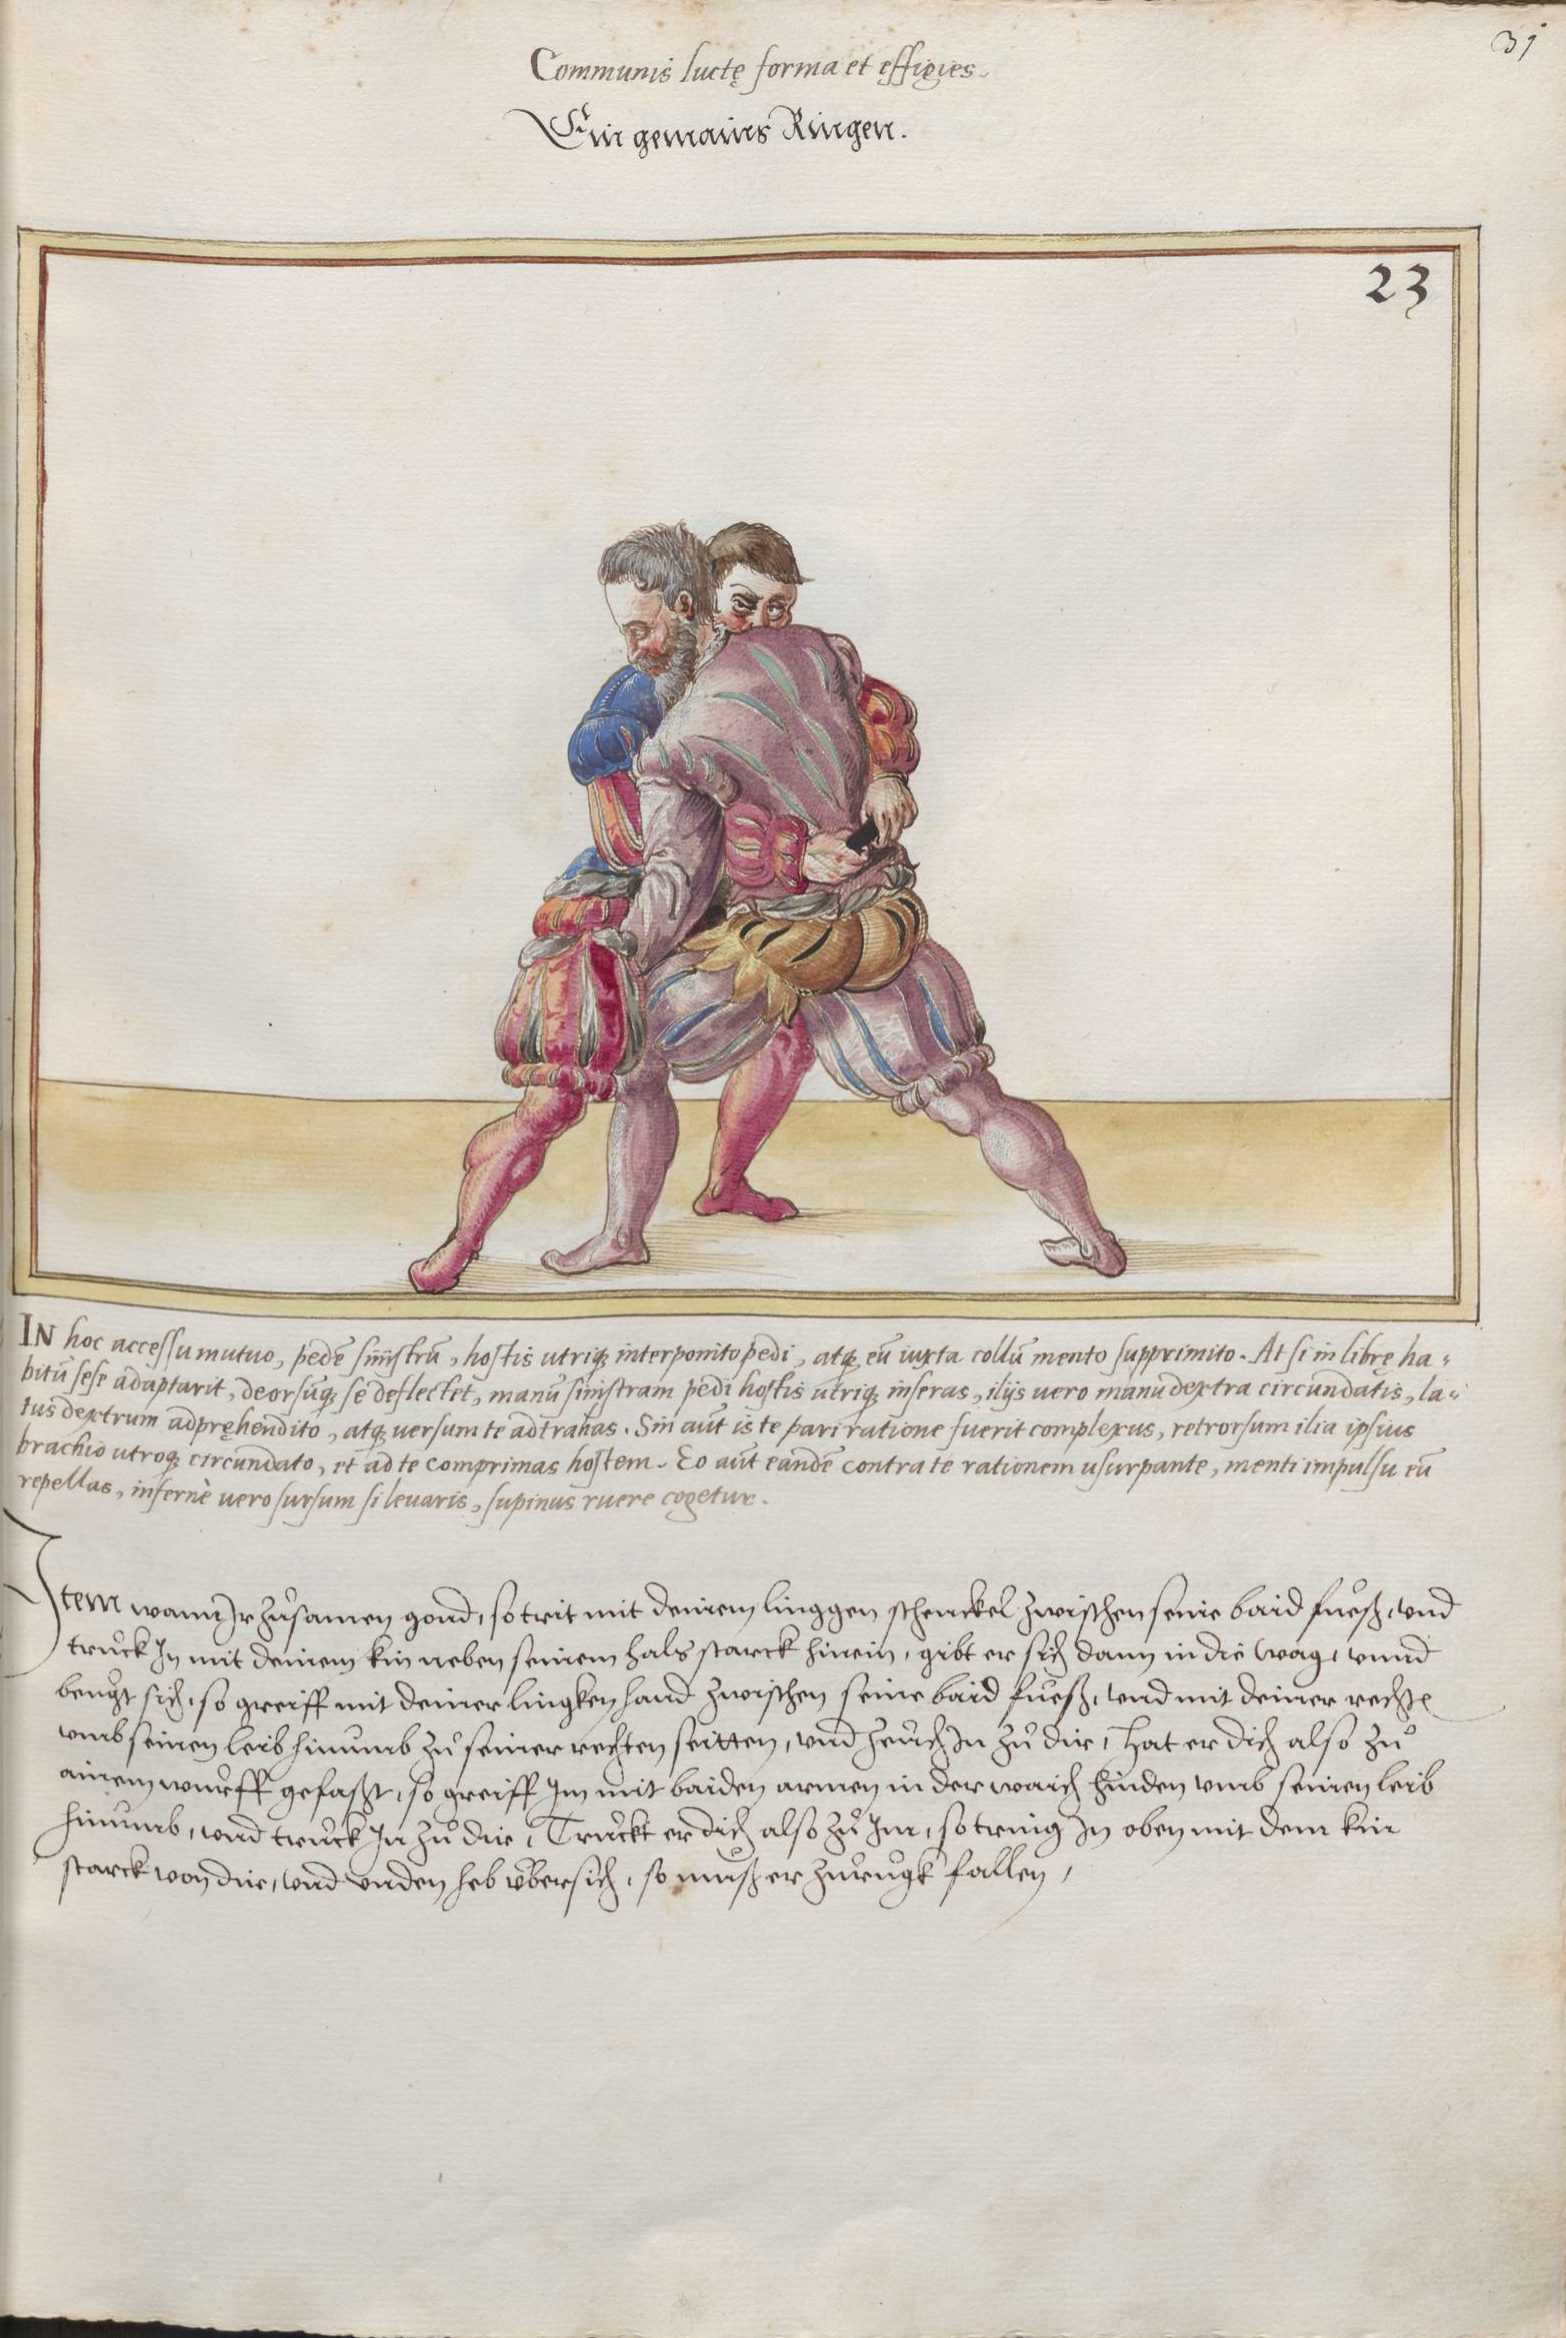 31
Communis luctę forma et effigies.
Ein gemains Ringen.
23
IN hoc accessu mutuo, pedē sinistrū, hostis utriq; interponito pedi, atq; eū iuxta collū mento supprimito. At si in librę ha-
bitū sese adaptarit, deorsūq; se deflectet, manū sinistram pedi hostis utriq; inseras, ilijs uero manu dextra circundatis, la-
tus dextrum adpręhendito, atq; uersum te adtrahas. Sin aūt is te pari ratione fuerit complexus, retrorsum ilia ipsius
brachio utroq; circundato, et ad te comprimas hostem. Eo aūt eandē contra te rationem usurpante, menti impulsu eū
repellas, infernè uero sursum si leuaris, supinus ruere cogetur.
Item wann Ir zůsamen gond, so trit mit deinem linggen schenckel zwischen seine baid fueß, vnd
truck In mit deinem kin neben seinem hals starck hinein, gibt er sich dann in die wag, vnnd
beugt sich, so greiff mit deiner lingken hand zwischen seine baid fueß, vnd mit deiner rechtē
vmb seinen leib hinumb zů seiner rechten seitten, vnd zeuch In zů dir, Hat er dich also zů
ainem wurff gefaßt, so greiff Im mit baiden armen in der waich hinden vmb seinen leib
hinumb, vnd truck In zů dir, Truckt er dich also zů Im, so tring In oben mit dem kin
starck von dir, vnd vnden heb übersich, so muß er zurugk fallen,